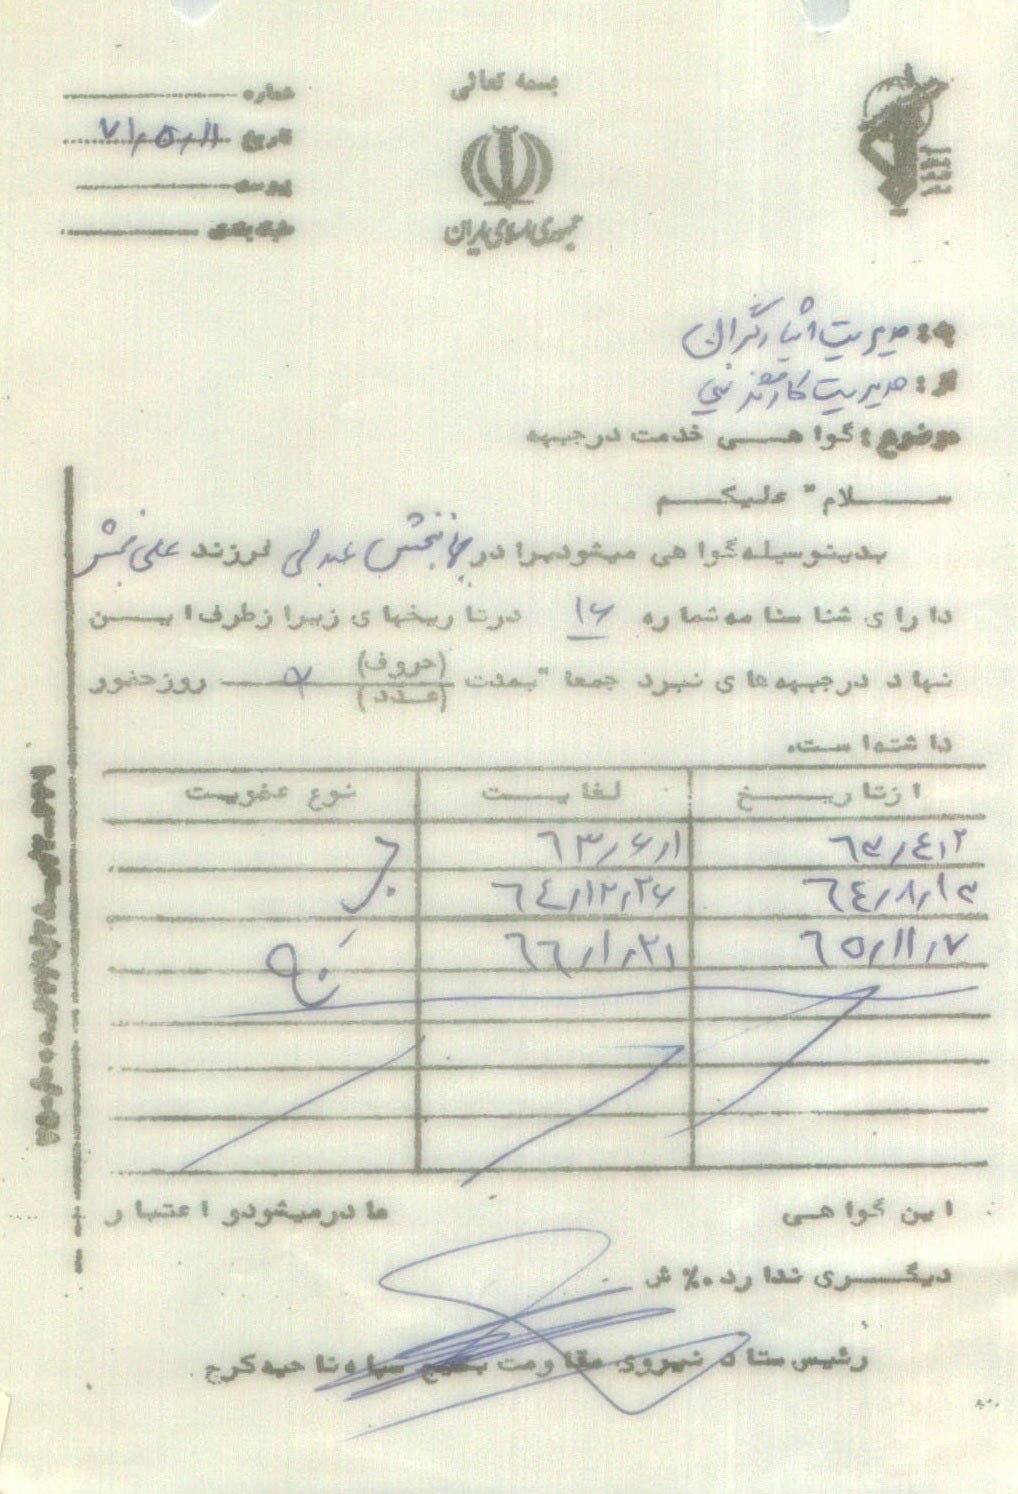 بسمه تعالی
شماره
تاریخ ۷۱/۵/۱۱
پیوست
طبقه بندی
جمهوری اسلامی ایران
به: مدیریت ایثارگران
از: مدیریت
موضوع: گواهی خدمت در جبهه
سلام علیکم
بدینوسیله گواهی میشود برادر جانبخش عبدلی فرزند علی بخش
دارای شناسنامه شماره ۱۶ در تاریخهای زیر از طرف این
نهاد در جبهه های نبرد جمعا" بمدت (حروف) (عدد) روز حضور
داشته است.
از تاریخ لغایت نوع عضویت
۶۳/۴/۲ ۶۳/۶/۱
۶۴/۸/۱۳ ۶۴/۱۲/۲۶
۶۵/۱۱/۷ ۶۶/۱/۲۱
این گواهی صادر میشود و اعتبار
دیگری ندارد.٪ ش
رئیس ستاد نیروی مقاومت بسیج سپاه ناحیه کرج